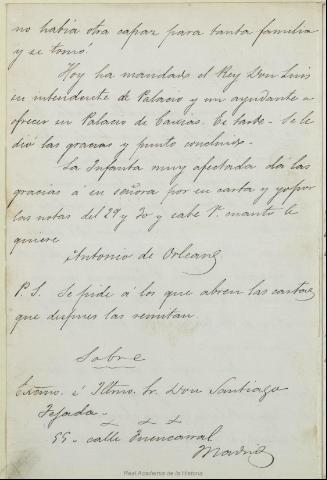 no habia otra capaz para tanta familia
y se tomó.
Hoy ha mandado el Rey Don Luis
su intendente de Palacio y un ayudante a
ofrecer su Palacio de Caxias. Es tarde - Se le
dió las gracias y punto concluido.
La Infanta muy afectada dá las
gracias á su señora por su carta y yo por
las notas del 29 y 30 y sabe V. cuanto le
quiere
Antonio de Orleans
P. S. Se pide á los que abren las cartas
que despues las remitan.
Sobre
Excmo. é Iltmo. Sr. Don Santiago
Tejada -
55 - calle Fuencarral
Madrid
Real Academia de la Historia